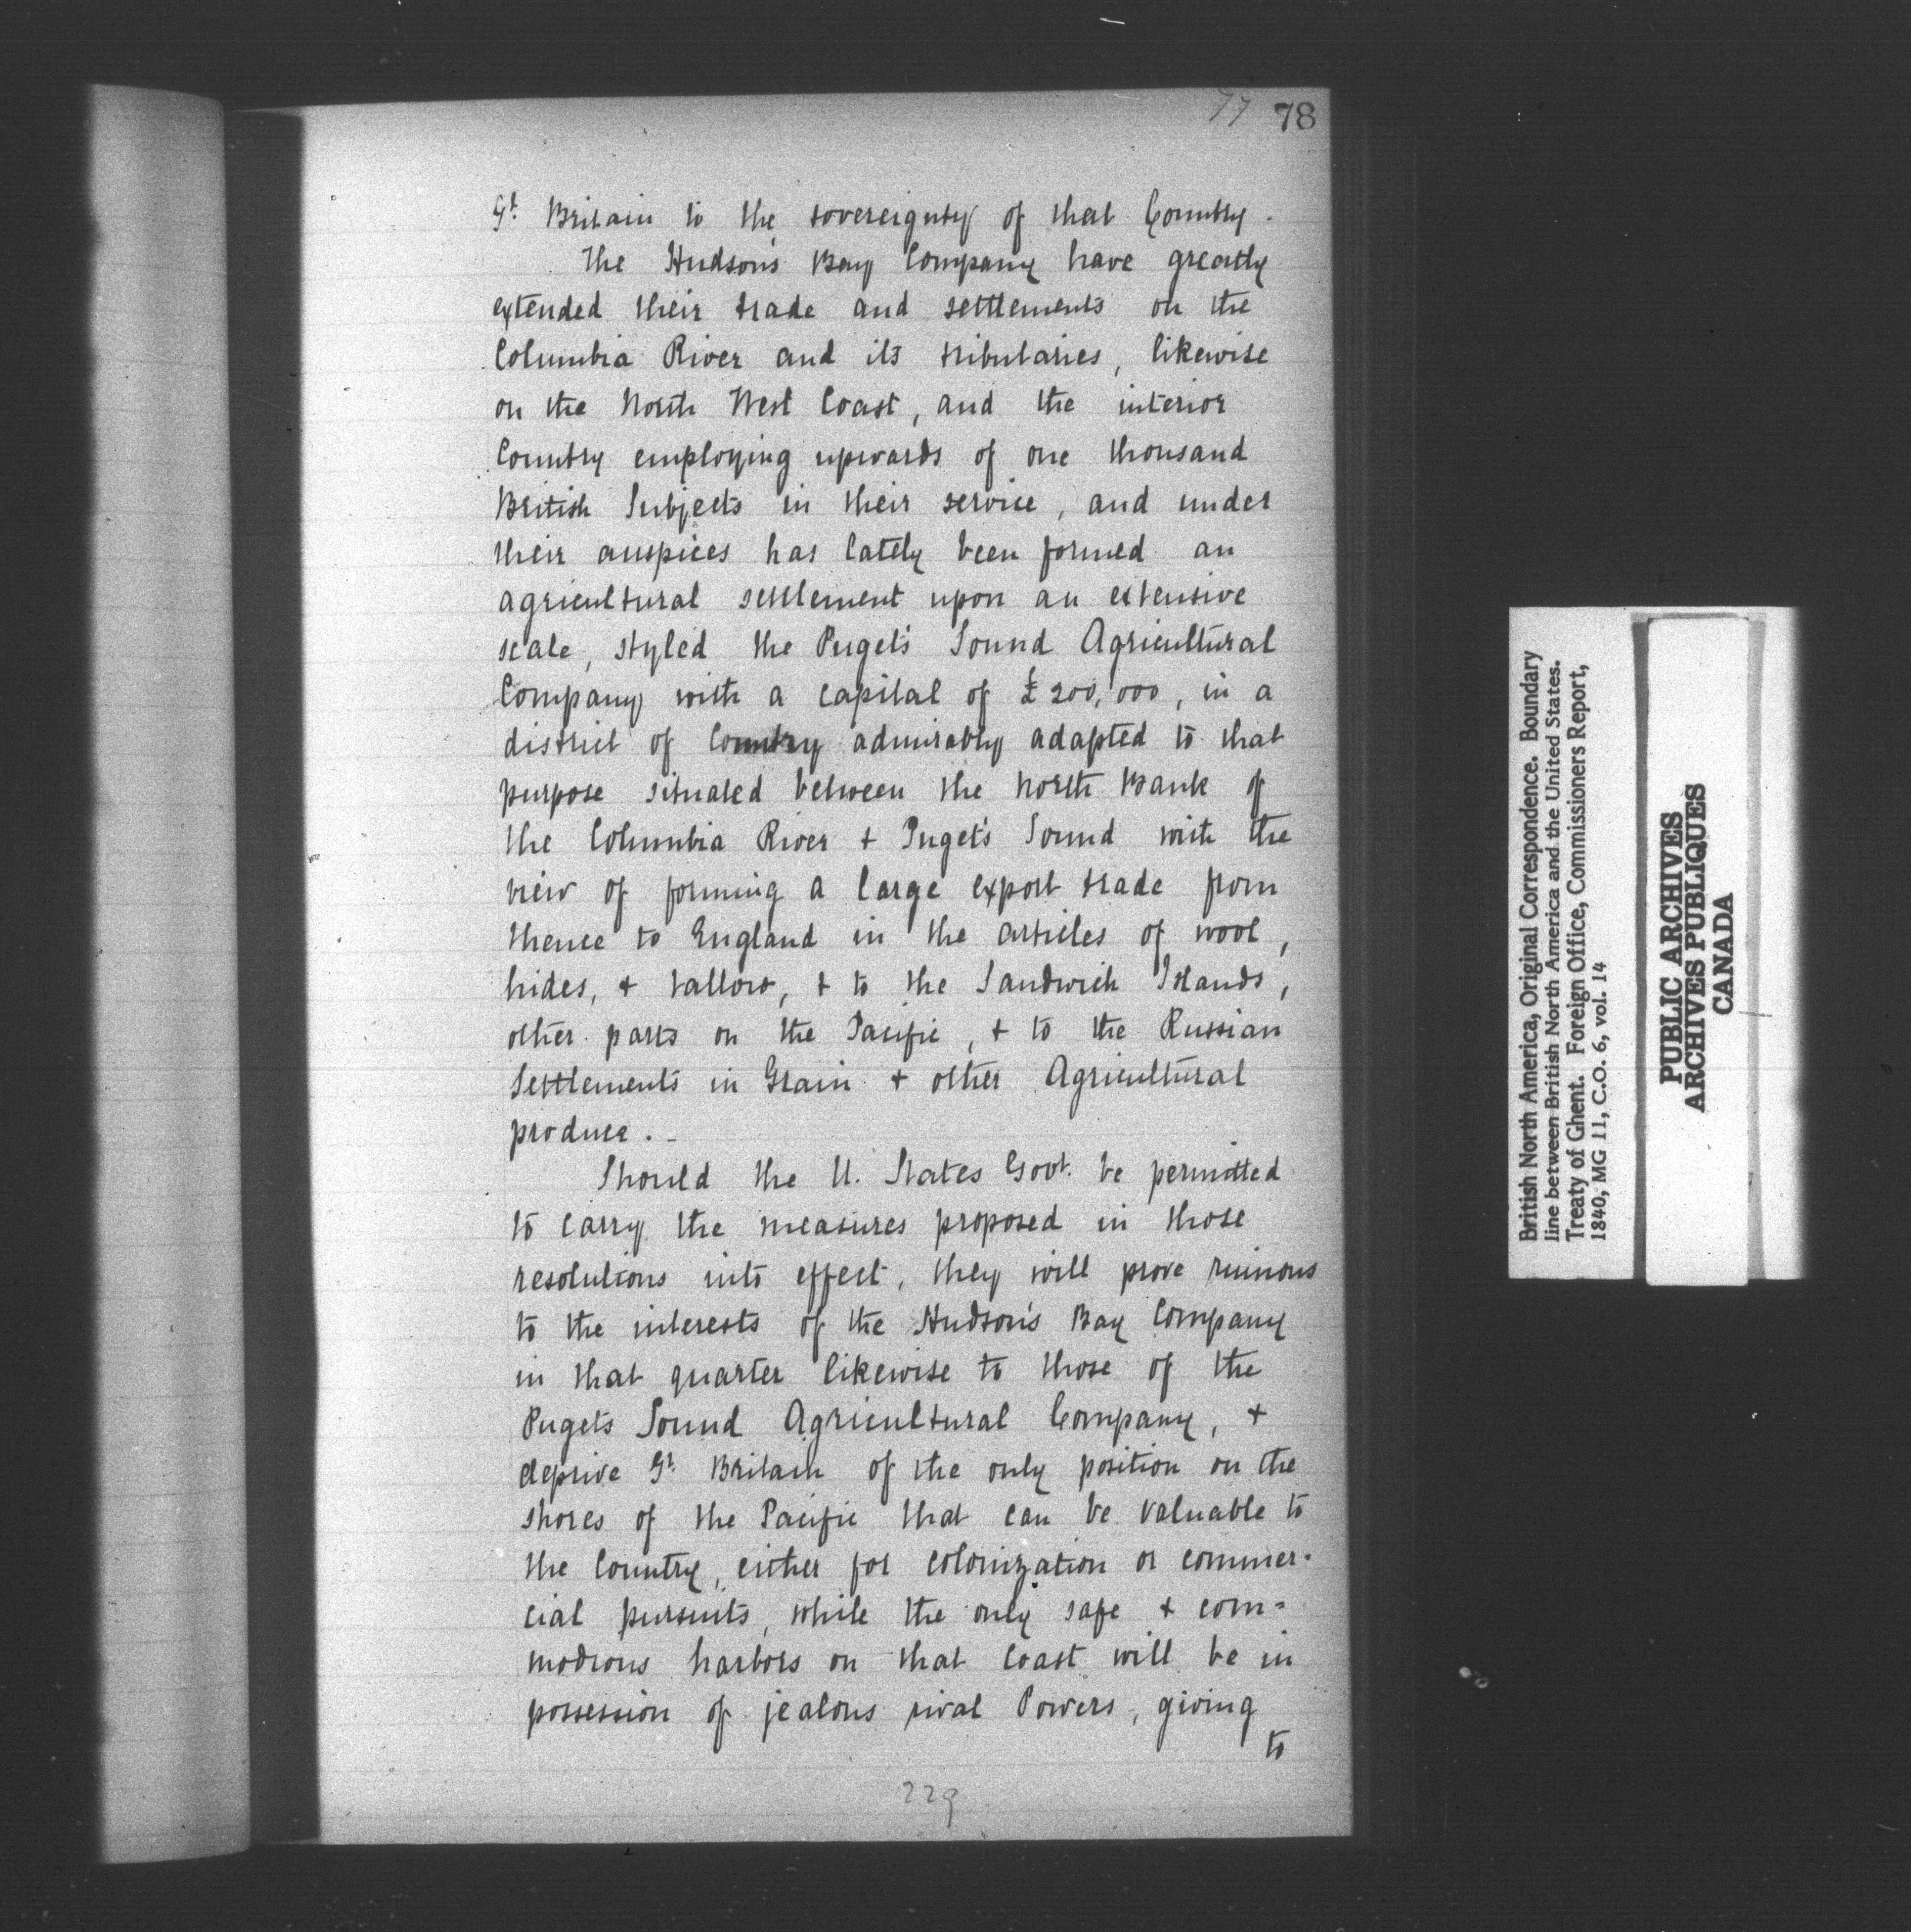 77 78
Gt. Britain to the sovereignty of that Country.
The Hudson's Bay Company have greatly
extended their trade and settlements on the
Columbia River and its tributaries, likewise
on the North West Coast, and the interior
Country employing upwards of one thousand
British Subjects in their service, and under
their auspices has lately been formed an
agricultural settlement upon an extensive
scale, styled the Puget's Sound Agricultural
Company with a capital of £200,000, in a
district of Country admirably adapted to that
purpose situated between the North Bank of
the Columbia River + Puget's Sound with the
view of forming a large export trade from
thence to England in the articles of wool,
hides, + tallow, + to the Sandwich Islands,
other parts on the Pacific, + to the Russian
Settlements in Grain + other Agricultural
produce. -
Should the U. States Govt. be permitted
to carry the measures proposed in those
resolutions into effect, they will prove ruinous
to the interests of the Hudson's Bay Company
in that quarter likewise to those of the
Puget's Sound Agricultural Company, +
deprive Gt. Britain of the only position on the
shores of the Pacific that can be valuable to
the Country, either for colonization or commer-
cial pursuits, while the only safe + com=
modious harbors on that Coast will be in
possession of jealous rival Powers, giving
to
229
British North America, Original Correspondence. Boundary
line between British North America and the United States.
Treaty of Ghent. Foreign Office, Commissioners Report,
1840, MG 11, C.O. 6, vol. 14
PUBLIC ARCHIVES
ARCHIVES PUBLIQUES
CANADA